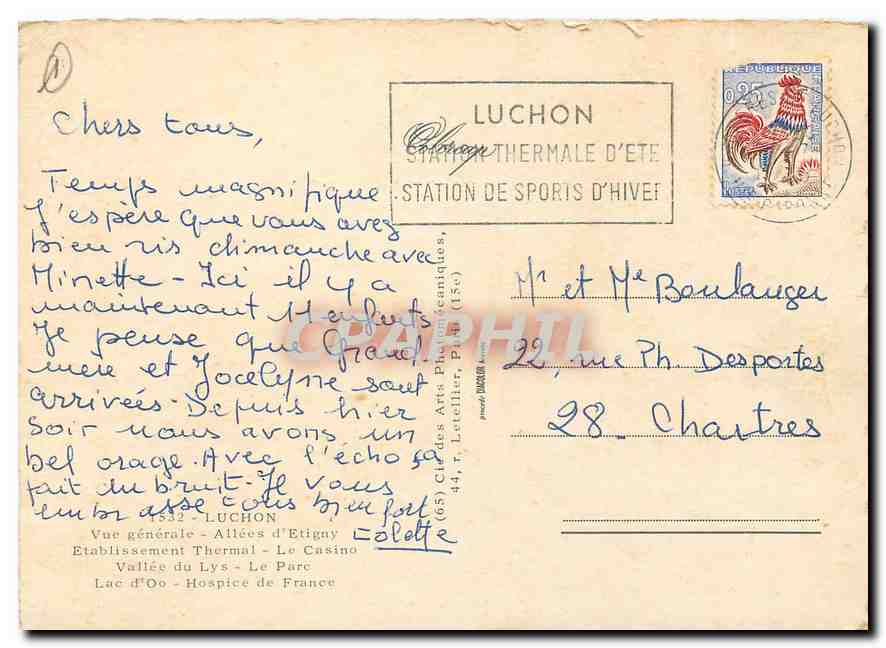 Chers tous,
Temps magnifique
J'espère que vous avez
bien ris dimanche avec
Minette - Ici il y a
maintenant 11 enfants
Je pense que Grand-
mère et Jocelyne sont
arrivées. Depuis hier
soir nous avons un
bel orage. Avec l'écho ça
fait du bruit - Je vous
embrasse tous bien fort
Colette
1532 - LUCHON
Vue générale - Allées d'Etigny
Etablissement Thermal - Le Casino
Vallée du Lys - Le Parc
Lac d'Oo - Hospice de France
(65) Cie des Arts Photomécaniques,
44, r. Letellier, Paris (15e)
procédé DIACOLOR
LUCHON
STATION THERMALE D'ETE
STATION DE SPORTS D'HIVER
REPUBLIQUE FRANÇAISE
0,25
POSTES
Mr et Me Boulanger
22, rue Ph. Desportes
28 - Chartres
CPAPHIL